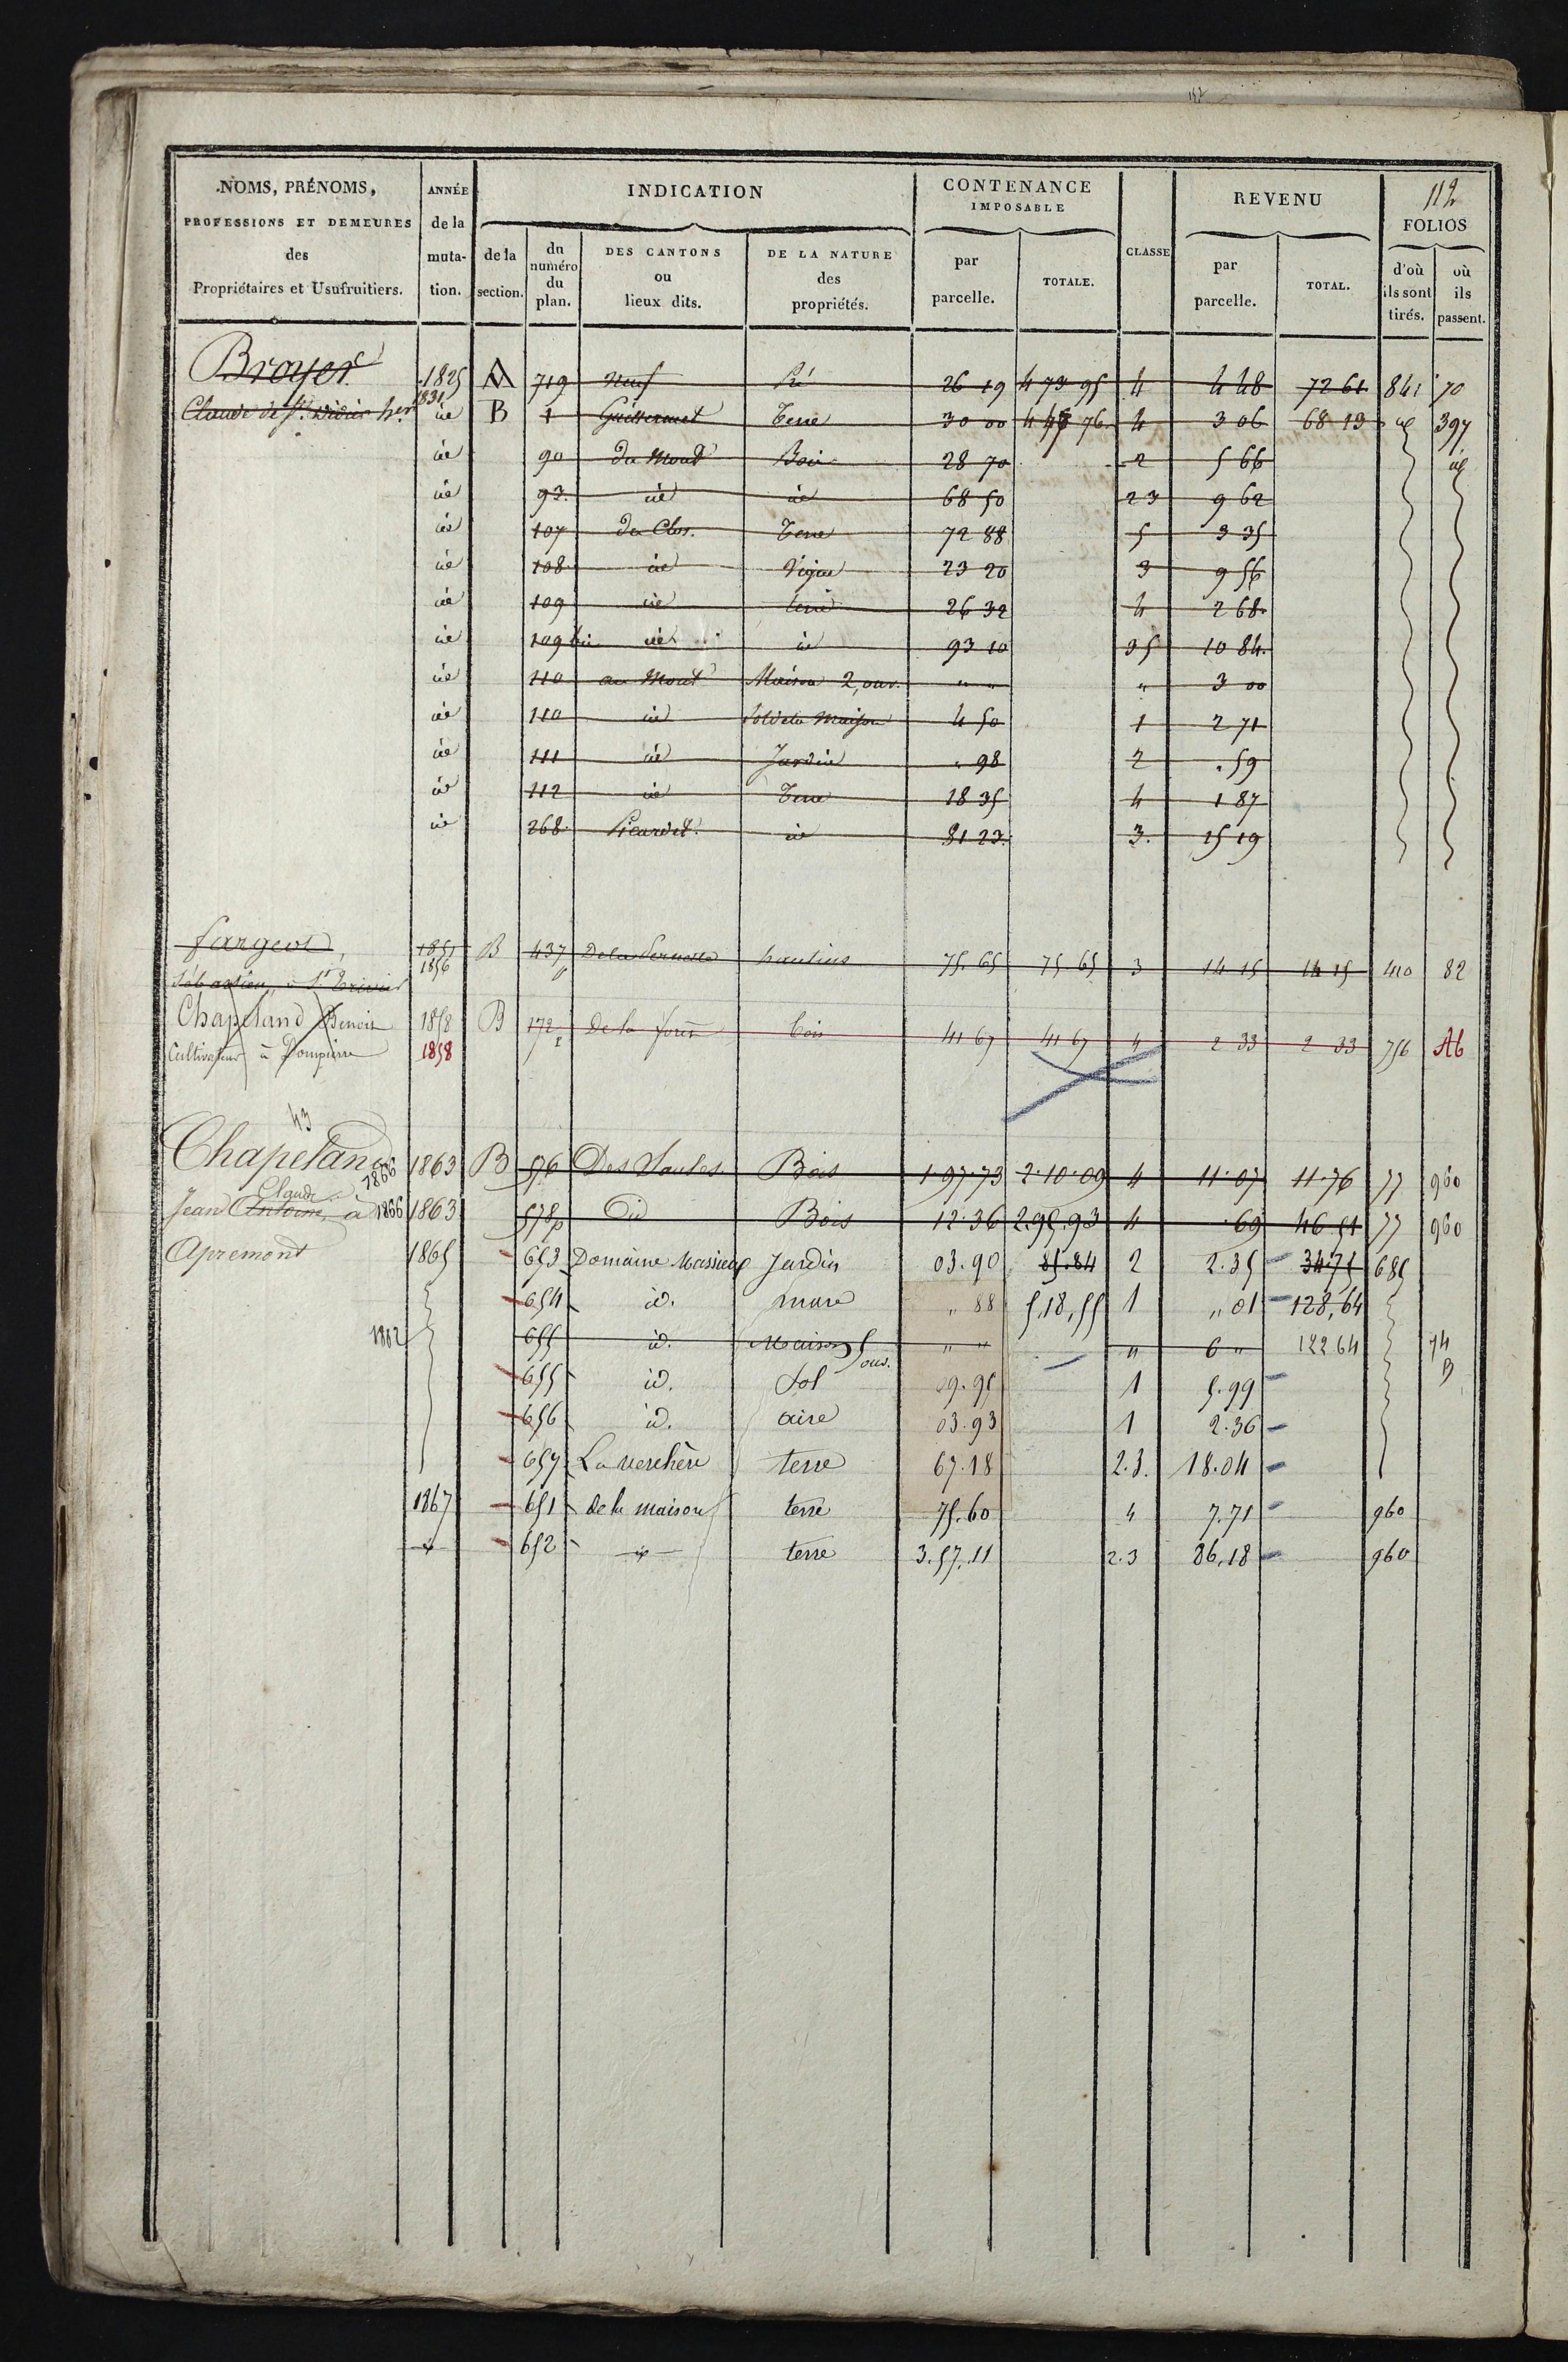 152
112
NOMS, PRÉNOMS, PROFESSIONS ET DEMEURES des Propriétaires et Usufruitiers. | ANNÉE de la muta-tion. | INDICATION | CONTENANCE IMPOSABLE | CLASSE | REVENU | FOLIOS
de la section. | du numéro du plan. | DES CANTONS ou lieux dits. | DE LA NATURE des propriétés. | par parcelle. | TOTALE. | par parcelle. | TOTAL. | d'où ils sont tirés. | où ils passent.
Broyer 1825 A 719 Neuf Pré 26 19 4 73 95 4 4 48 72 61 841 70
1831
Claude de St. Didier her id B 1 Guillermet Terre 30 00 4 76 4 3 06 68 13 id 397
id 90 du Mont Bois 28 70 2 5 66 id
id 93. id id 68 50 23 9 62
id 107 du Clos. Terre 72 88 5 3 35
id 108 id Vigne 23 20 3 9 56
id 109 id terre 26 32 4 2 68.
id 109 bis id id 93 10 35 10 84.
id 110 au Mont Maison 2, ouv. " " " 3 00
id 110 id Sol de la Maison 4 50 1 2 71
id 111 id Jardin . 98 2 . 59
id 112 id Terre 18 35 4 1 87
id 268. Picardet. id 81 23. 3. 15 19
fargeot, 1851 B 437 De la hautins 75 65 75 65 3 14 15 14 15 410 82
1856
Sébastien, à St Trivier
Chapeland Benoit 1858 B 172 De la forêt bois 41 67 41 67 4 2 33 2 33 756 Ab
Cultivateur à Dompierre 1858
43
Chapeland 1866 1863 B 576 Des Saules Bois 1.97.73 2.10.09 4 11.07 11.76 77 960
Claude
Jean Antoine, à 1866 1863 578p Did Bois 12.36 2.95.93 4 .69 46 51 77 960
Apremont 1865 653 Domaine Massieux Jardin 03.90 85.84 2 2.35 34.75 685
654 id. mare " 88 5,18,55 1 " 01 128,64
1882 655 id. Maison 5 ouv. " " " 6 " 122 64 74 B
655 id. Sol 09.95 1 5.99
656 id. aire 03.93 1 2.36
657 La verchère terre 67.18 2.3. 18.04
1867 651 de la maison terre 75.60 4 7.71 960
id 652 id terre 3.57.11 2.3 86,18 960